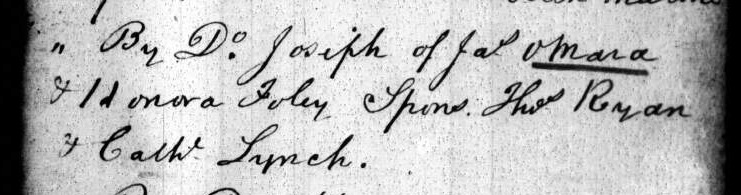 " By Do. Joseph of Jas OMara
& Honora Foley Spons. Thos Ryan
& Cathe Lynch.